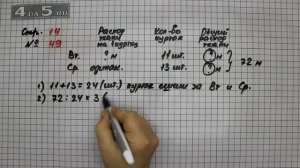 4АД5.РУ
Стр. 14
№ 49
Расход ткани на 1 куртку
Кол-во курток
Общий расход ткани
Вт. ? м 11 шт. ? м
72 м
Ср. одинак. 13 шт. ? м
1) 11+13=24 (шт.) курток сшили за Вт и Ср.
2) 72:24=3 (